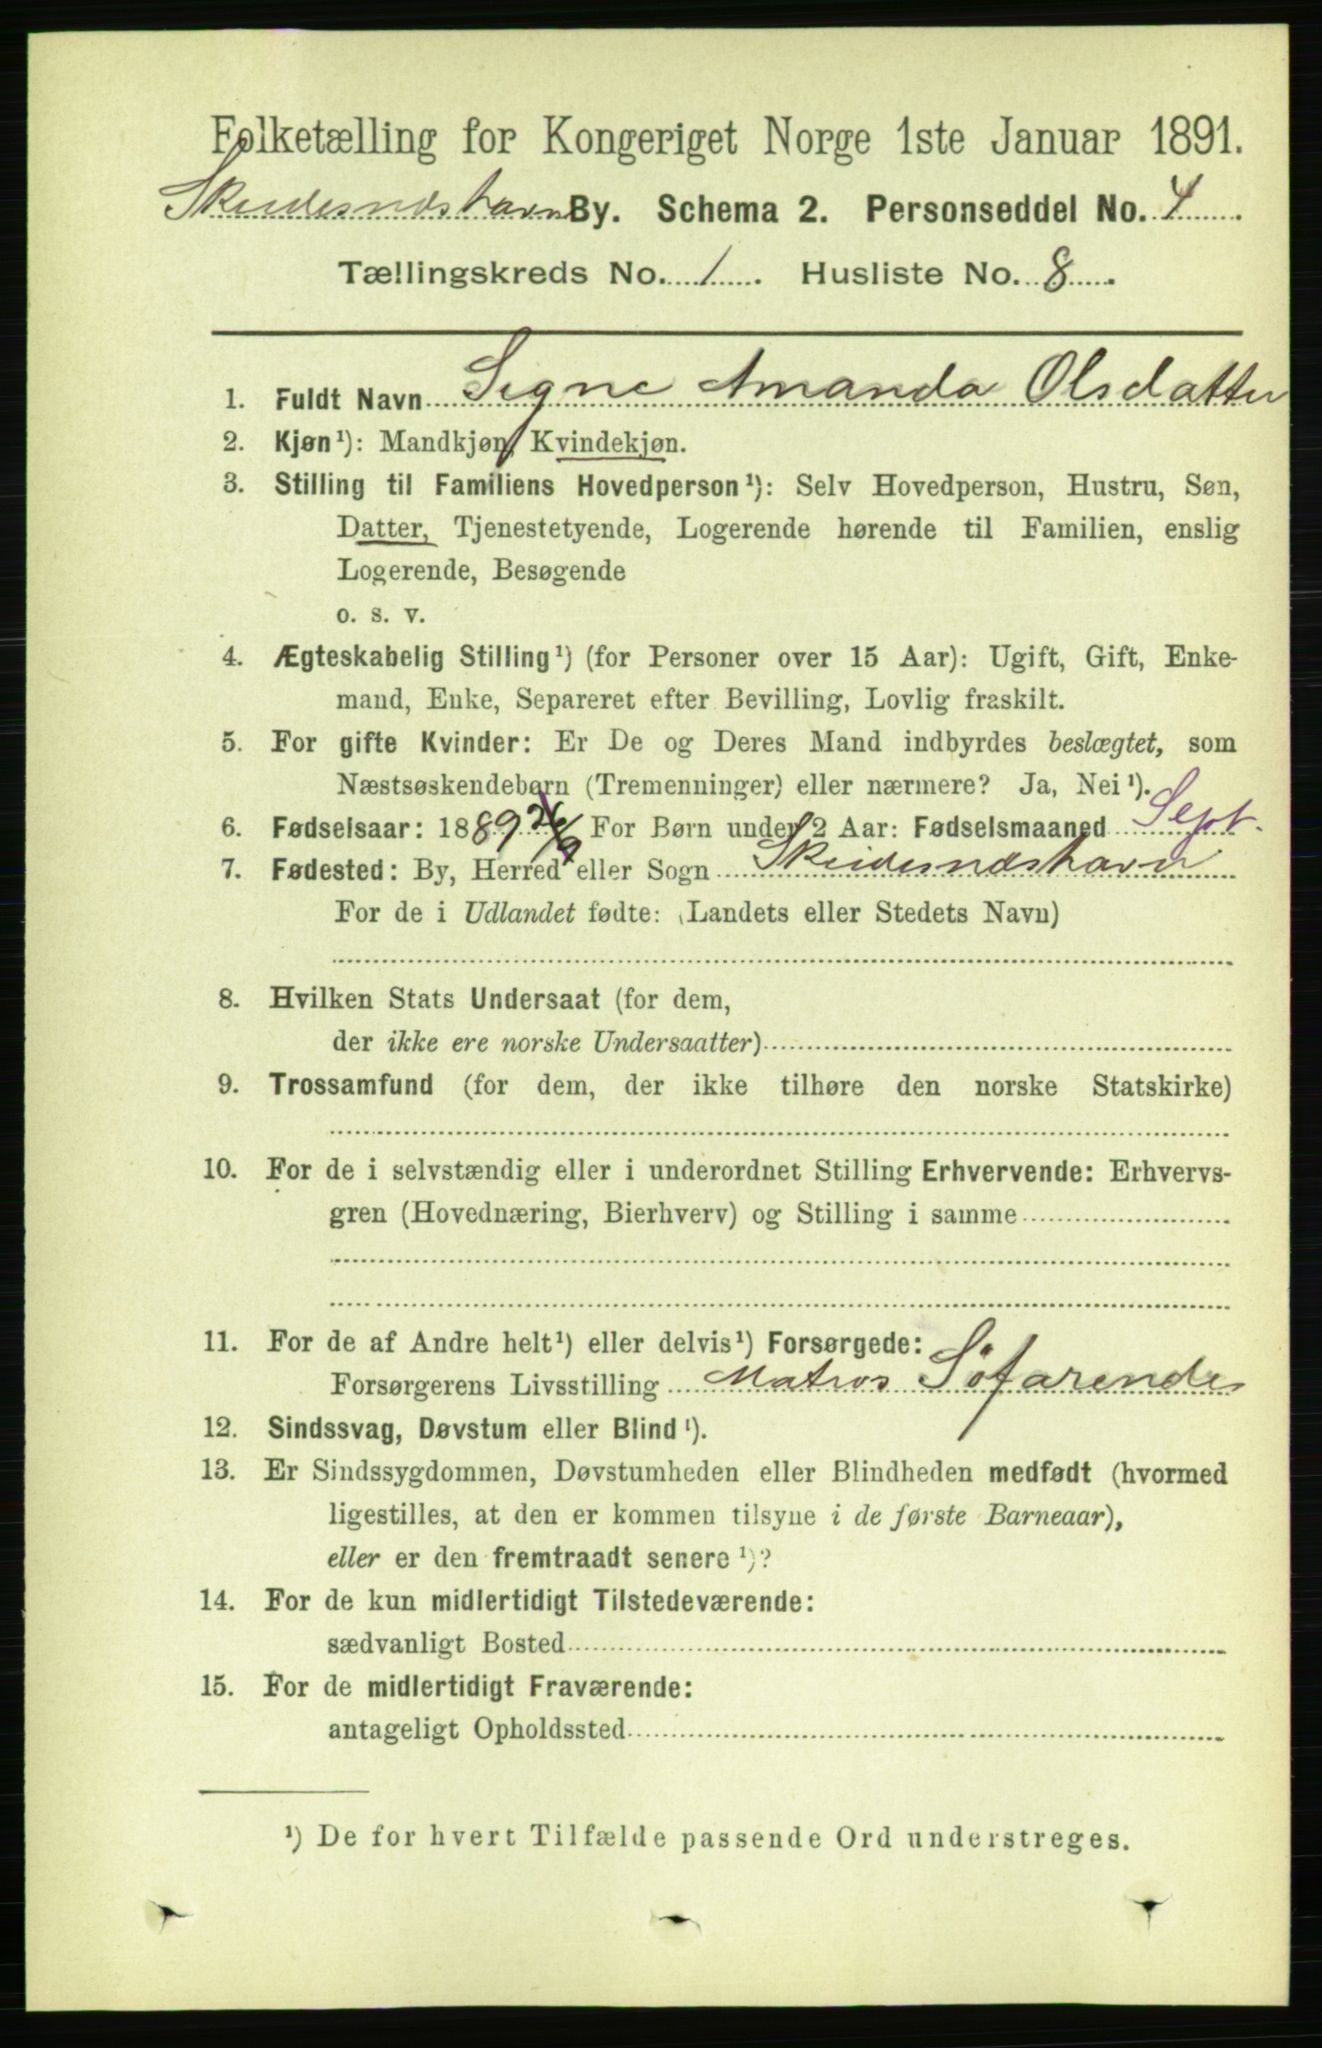 Folketælling for Kongeriget Norge 1ste Januar 1891.
Skudesneshavn By. Schema 2. Personseddel No. 4
Tællingskreds No. 1. Husliste No. 8.
1. Fuldt Navn Signe Amanda Olsdatter
2. Kjøn¹): Mandkjøn, Kvindekjøn.
3. Stilling til Familiens Hovedperson¹): Selv Hovedperson, Hustru, Søn,
Datter, Tjenestetyende, Logerende hørende til Familien, enslig
Logerende, Besøgende
o. s. v.
4. Ægteskabelig Stilling¹) (for Personer over 15 Aar): Ugift, Gift, Enke-
mand, Enke, Separeret efter Bevilling, Lovlig fraskilt.
5. For gifte Kvinder: Er De og Deres Mand indbyrdes beslægtet, som
Næstsøskendebørn (Tremenninger) eller nærmere? Ja, Nei¹).
6. Fødselsaar: 1889 26/9 For Børn under 2 Aar: Fødselsmaaned Sept.
7. Fødested: By, Herred eller Sogn Skudesneshavn
For de i Udlandet fødte: (Landets eller Stedets Navn)
8. Hvilken Stats Undersaat (for dem,
der ikke ere norske Undersaatter)
9. Trossamfund (for dem, der ikke tilhøre den norske Statskirke)
10. For de i selvstændig eller i underordnet Stilling Erhvervende: Erhvervs-
gren (Hovednæring, Bierhverv) og Stilling i samme
11. For de af Andre helt¹) eller delvis¹) Forsørgede:
Forsørgerens Livsstilling Matros Söfarende
12. Sindssvag, Døvstum eller Blind¹).
13. Er Sindssygdommen, Døvstumheden eller Blindheden medfødt (hvormed
ligestilles, at den er kommen tilsyne i de første Barneaar),
eller er den fremtraadt senere¹)?
14. For de kun midlertidigt Tilstedeværende:
sædvanligt Bosted
15. For de midlertidigt Fraværende:
antageligt Opholdssted
¹) De for hvert Tilfælde passende Ord understreges.